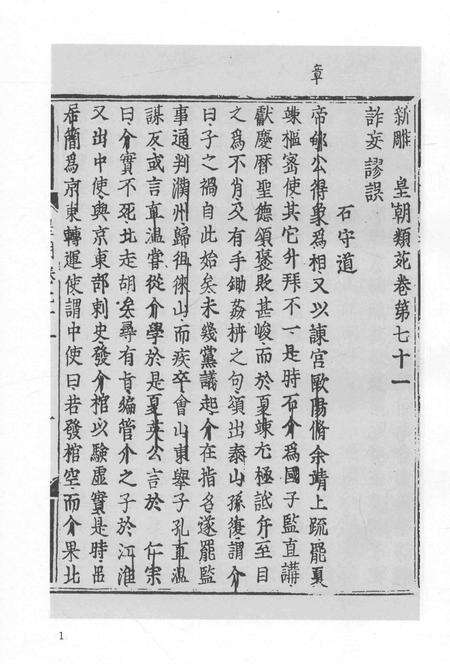 章
新雕　皇朝類苑卷第七十一
詐妄謬誤
石守道
帝邺公得象爲相又以諫官歐陽脩余靖上疏罷夏
竦樞密使其它升拜不一是時石介爲國子監直講
獻慶曆聖德頌褒貶甚峻而於夏竦尤極詆斥至目
之爲不肖又有手鋤姦枿之句頌出泰山孫復謂介
曰子之禍自此始矣未幾黨議起介在指名遂罷監
事通判濮州歸徂徠山而疾卒會山東舉子孔直温
謀反或言直温嘗從介學於是夏英公言於　仁宗
曰介實不死北走胡矣尋有旨編管介之子於江淮
又出中使與京東部刺史發介棺以驗虛實是時吕
居簡爲京東轉運使謂中使曰若發棺空而介果北
1